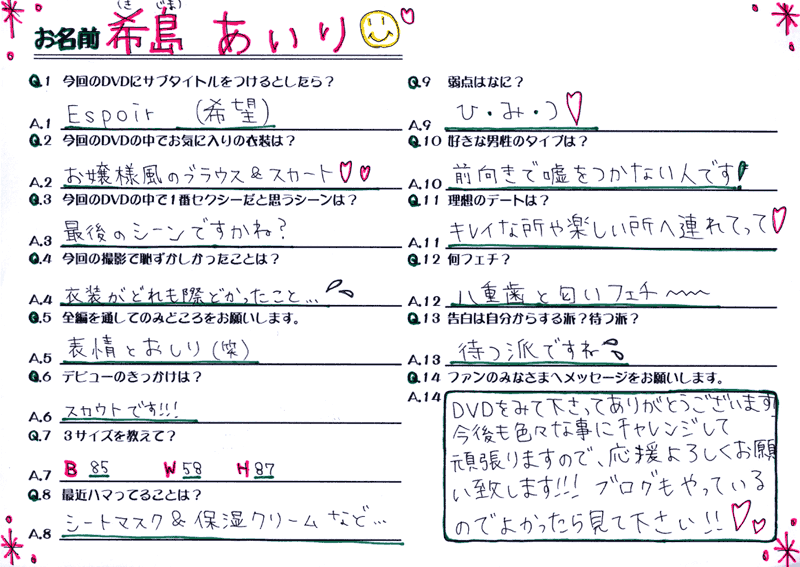 お名前 希島 あいり
(き じま)
Q.1 今回のDVDにサブタイトルをつけるとしたら？
A.1 Espoir (希望)
Q.2 今回のDVDの中でお気に入りの衣装は？
A.2 お嬢様風のブラウス&スカート♡♡
Q.3 今回のDVDの中で1番セクシーだと思うシーンは？
A.3 最後のシーンですかね?
Q.4 今回の撮影で恥ずかしかったことは？
A.4 衣装がどれも際どかったこと…
Q.5 全編を通してのみどころをお願いします。
A.5 表情とおしり(笑)
Q.6 デビューのきっかけは？
A.6 スカウトです!!!
Q.7 3サイズを教えて？
A.7 B 85 W 58 H 87
Q.8 最近ハマってることは？
A.8 シートマスク&保湿クリームなど…
Q.9 弱点はなに？
A.9 ひ・み・つ♡
Q.10 好きな男性のタイプは？
A.10 前向きで嘘をつかない人です
Q.11 理想のデートは？
A.11 キレイな所や楽しい所へ連れてって♡
Q.12 何フェチ？
A.12 八重歯と匂いフェチ〜〜
Q.13 告白は自分からする派？待つ派？
A.13 待つ派ですね
Q.14 ファンのみなさまへメッセージをお願いします。
A.14 DVDをみて下さってありがとうございます!
今後も色々な事にチャレンジして
頑張りますので、応援よろしくお願
い致します!!! ブログもやっている
のでよかったら見て下さい!!♡♡